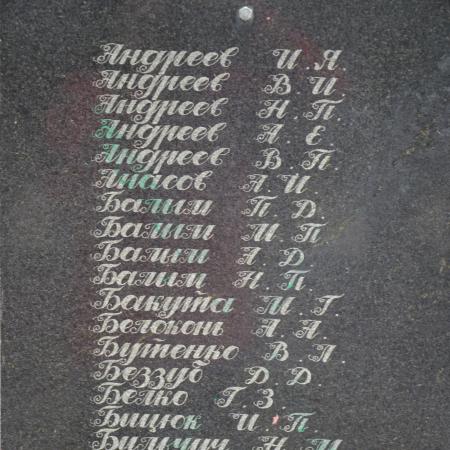 Андреев И. Я.
Андреев В. И.
Андреев Н. П.
Андреев А. Е
Андреев В. П.
Анасов А. И.
Балым П. Д.
Балым М. П
Балым А. Д.
Балым Н. П.
Бакута М. Г
Белоконь А. А.
Бутенко В. П.
Беззуб Д. Д
Белко Г. З.
Бицюк И. П.
Бильчич Н. М